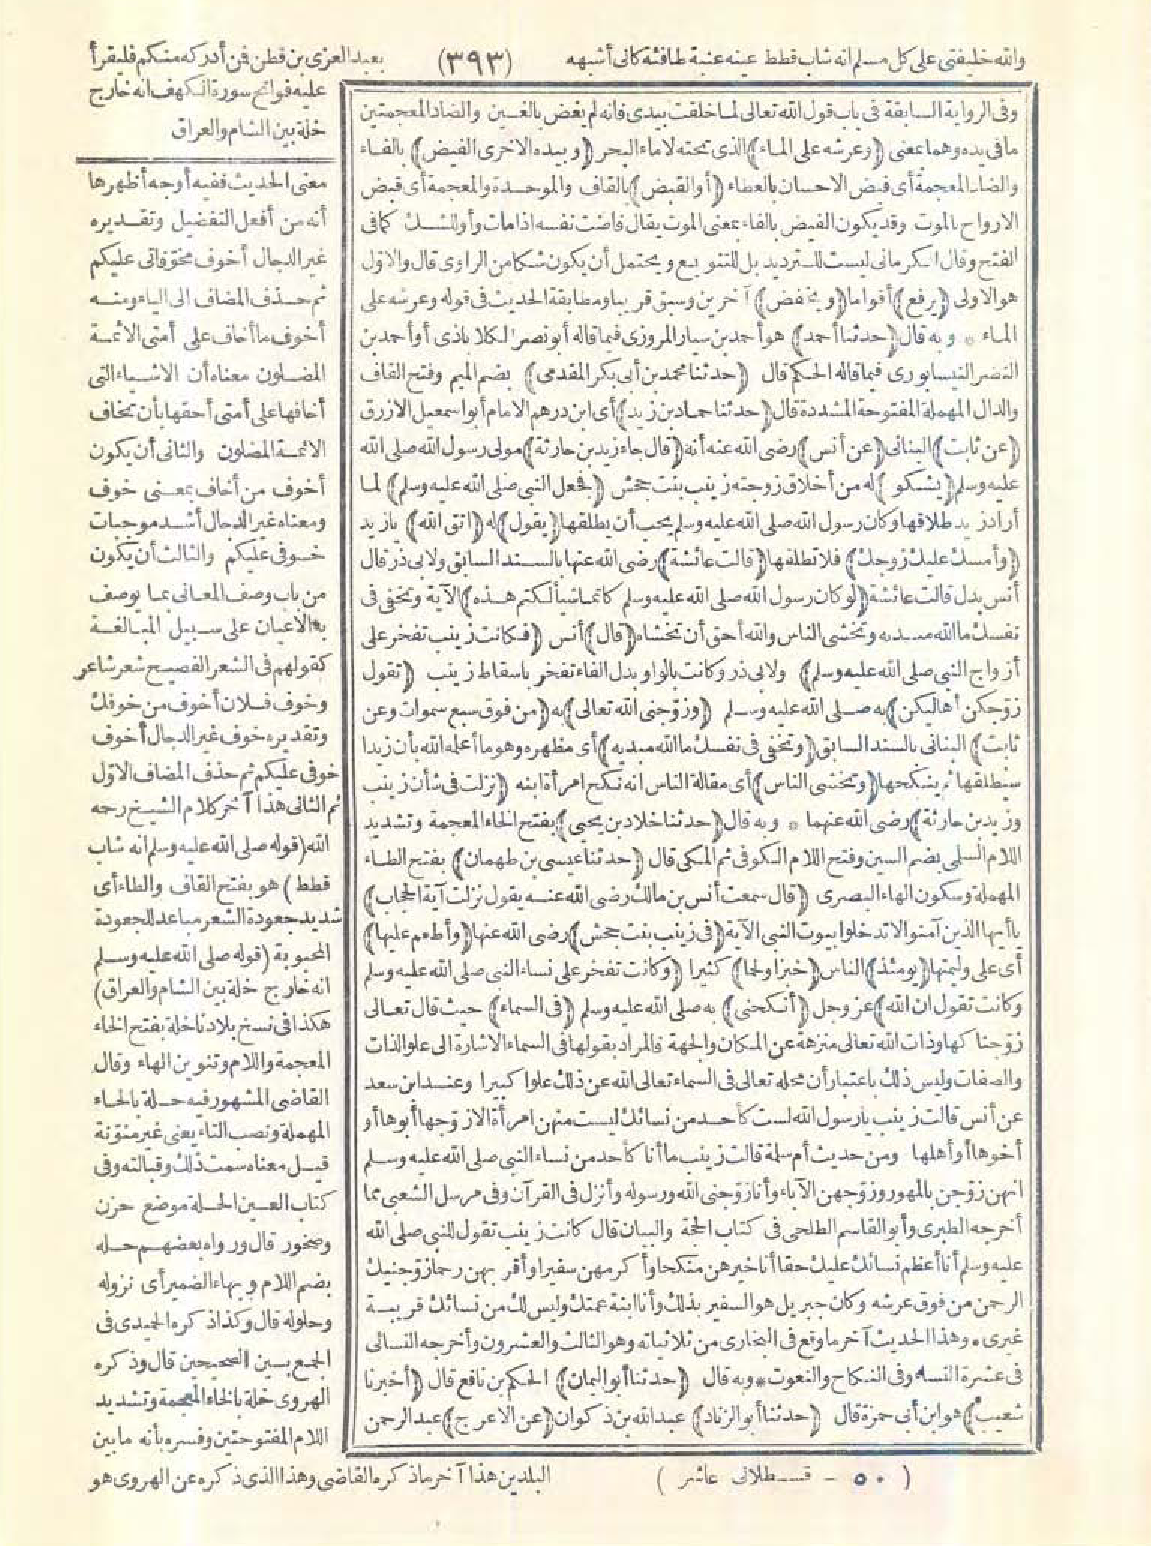 والله خليفتي على كل مسلم انه شاب قطط عينه عنبة طافئة كأني أشبهه
(٣٩٣)
بعبد العزى بن قطن فمن أدركه منكم فليقرأ
عليه فواتح سورة الكهف انه خارج
خلة بين الشام والعراق
وفى الرواية السابقة فى باب قول الله تعالى لما خلقت بيدى فانه لم يغض بالغين والضاد المعجمتين
مافى يده وهما بمعنى (وعرشه على الماء) الذى تحته لا ماء البحر (وبيده الاخرى الفيض) بالفاء
والضاد المعجمة أى فيض الاحسان بالعطاء (أو القبض) بالقاف والموحدة والمعجمة أى قبض
الارواح بالموت وقد يكون الفيض بالفاء بمعنى الموت يقال فاضت نفسه اذا مات وأو للشك كما فى
الفتح وقال الكرمانى ليست للترديد بل للتنويع ويحتمل أن يكون شكا من الراوى قال والاول
هو الاولى (يرفع) أقواما (ويخفض) آخرين وسبق قريبا ومطابقة الحديث فى قوله وعرشه على
الماء * وبه قال (حدثنا أحمد) هو أحمد بن سيار المروزى فيما قاله أبو نصر الكلاباذى أو أحمد بن
النضر النيسابورى فيما قاله الحكم قال (حدثنا محمد بن أبى بكر المقدمى) بضم الميم وفتح القاف
والدال المهملة المفتوحة المشددة قال (حدثنا حماد بن زيد) أى ابن درهم الامام أبو اسمعيل الازرق
(عن ثابت) البنانى (عن أنس) رضى الله عنه أنه (قال جاء زيد بن حارثة) مولى رسول الله صلى الله
عليه وسلم (يشكو) له من أخلاق زوجته زينب بنت جحش (فجعل النبى صلى الله عليه وسلم) لما
أراد زيد طلاقها وكان رسول الله صلى الله عليه وسلم يحب أن يطلقها (يقول) له (اتق الله) يا زيد
(وأمسك عليك زوجك) فلا تطلقها (قالت عائشة) رضى الله عنها بالسند السابق ولابى ذر قال
أنس بدل قالت عائشة (لو كان رسول الله صلى الله عليه وسلم كاتما شيأ لكتم هذه) الآية وتخفى فى
نفسك ما الله مبديه وتخشى الناس والله أحق أن تخشاه (قال) أنس (فكانت زينب تفخر على
أزواج النبى صلى الله عليه وسلم) ولابى ذر وكانت بالواو بدل الفاء تفخر باسقاط زينب (تقول
زوجكن أهاليكن) به صلى الله عليه وسلم (وزوجنى الله تعالى) به (من فوق سبع سموات وعن
ثابت) البنانى بالسند السابق (وتخفى فى نفسك ما الله مبديه) أى مظهره وهو ما أعلمه الله بأن زيدا
سيطلقها ثم ينكحها (وتخشى الناس) أى مقالة الناس انه نكح امرأة ابنه (نزلت فى شأن زينب
وزيد بن حارثة) رضى الله عنهما * وبه قال (حدثنا خلاد بن يحيى) بفتح الخاء المعجمة وتشديد
اللام السلمى بضم السين وفتح اللام الكوفى ثم المكى قال (حدثنا عيسى بن طهمان) بفتح الطاء
المهملة وسكون الهاء البصرى (قال سمعت أنس بن مالك رضى الله عنه يقول نزلت آية الحجاب)
يا أيها الذين آمنوا لا تدخلوا بيوت النبى الآية (فى زينب بنت جحش) رضى الله عنها (وأطعم عليها)
أى على وليمتها (يومئذ) الناس (خبزا ولحما) كثيرا (وكانت تفخر على نساء النبى صلى الله عليه وسلم
وكانت تقول ان الله) عز وجل (أنكحنى) به صلى الله عليه وسلم (فى السماء) حيث قال تعالى
زوجناكها وذات الله تعالى منزهة عن المكان والجهة فالمراد بقولها فى السماء الاشارة الى علو الذات
والصفات وليس ذلك باعتبار أن محله تعالى فى السماء تعالى الله عن ذلك علوا كبيرا وعند ابن سعد
عن أنس قالت زينب يا رسول الله لست كأحد من نسائك ليست منهن امرأة الا زوجها أبوها أو
أخوها أو أهلها ومن حديث أم سلمة قالت زينب ما أنا كأحد من نساء النبى صلى الله عليه وسلم
انهن زوجن بالمهور وزوجهن الآباء وأنا زوجنى الله ورسوله وأنزل فى القرآن وفى مرسل الشعبى مما
أخرجه الطبرى وأبو القاسم الطلحى فى كتاب الحجة والبيان قال كانت زينب تقول للنبى صلى الله
عليه وسلم أنا أعظم نسائك عليك حقا أنا خيرهن منكحا وأكرمهن سفيرا وأقربهن رحما زوجنيك
الرحمن من فوق عرشه وكان جبريل هو السفير بذلك وأنا ابنة عمتك وليس لك من نسائك قريبة
غيرى * وهذا الحديث آخر ما وقع فى البخارى من ثلاثياته وهو الثالث والعشرون وأخرجه النسائى
فى عشرة النساء وفى النكاح والنعوت * وبه قال (حدثنا أبو اليمان) الحكم بن نافع قال (أخبرنا
شعيب) هو ابن أبى حمزة قال (حدثنا أبو الزناد) عبد الله بن ذكوان (عن الاعرج) عبد الرحمن
معنى الحديث ففيه أوجه أظهرها
أنه من أفعل التفضيل وتقديره
غير الدجال أخوف مخوفاتى عليكم
ثم حذف المضاف الى الياء ومنه
أخوف ما أخاف على أمتى الأئمة
المضلون معناه أن الاشياء التى
أخافها على أمتى أحقها بأن تخاف
الائمة المضلون والثانى أن يكون
أخوف من أخاف بمعنى خوف
ومعناه غير الدجال أشد موجبات
خوفى عليكم والثالث أن يكون
من باب وصف المعانى بما يوصف
به الاعيان على سبيل المبالغة
كقولهم فى الشعر الفصيح شعر شاعر
وخوف فلان أخوف من خوفك
وتقديره خوف غير الدجال أخوف
خوفى عليكم ثم حذف المضاف الاول
ثم الثانى هذا آخر كلام الشيخ رحمه
الله (قوله صلى الله عليه وسلم انه شاب
قطط) هو بفتح القاف والطاء أى
شديد جعودة الشعر مباعد للجعودة
المحبوبة (قوله صلى الله عليه وسلم
انه خارج خلة بين الشام والعراق)
هكذا فى نسخ بلادنا خلة بفتح الخاء
المعجمة واللام وتنوين الهاء وقال
القاضى المشهور فيه حلة بالحاء
المهملة ونصب التاء يعنى غير منونة
قيل معناه سمت ذلك وقبالته وفى
كتاب العين الحلة موضع حزن
وصخور قال ورواه بعضهم حله
بضم اللام وبهاء الضمير أى نزوله
وحلوله قال وكذا ذكره الحميدى فى
الجمع بين الصحيحين قال وذكره
الهروى خلة بالخاء المعجمة وتشديد
اللام المفتوحتين وفسره بأنه ما بين
البلدين هذا آخر ما ذكره القاضى وهذا الذى ذكره عن الهروى هو
(٥٠ - قسطلانى عاشر)